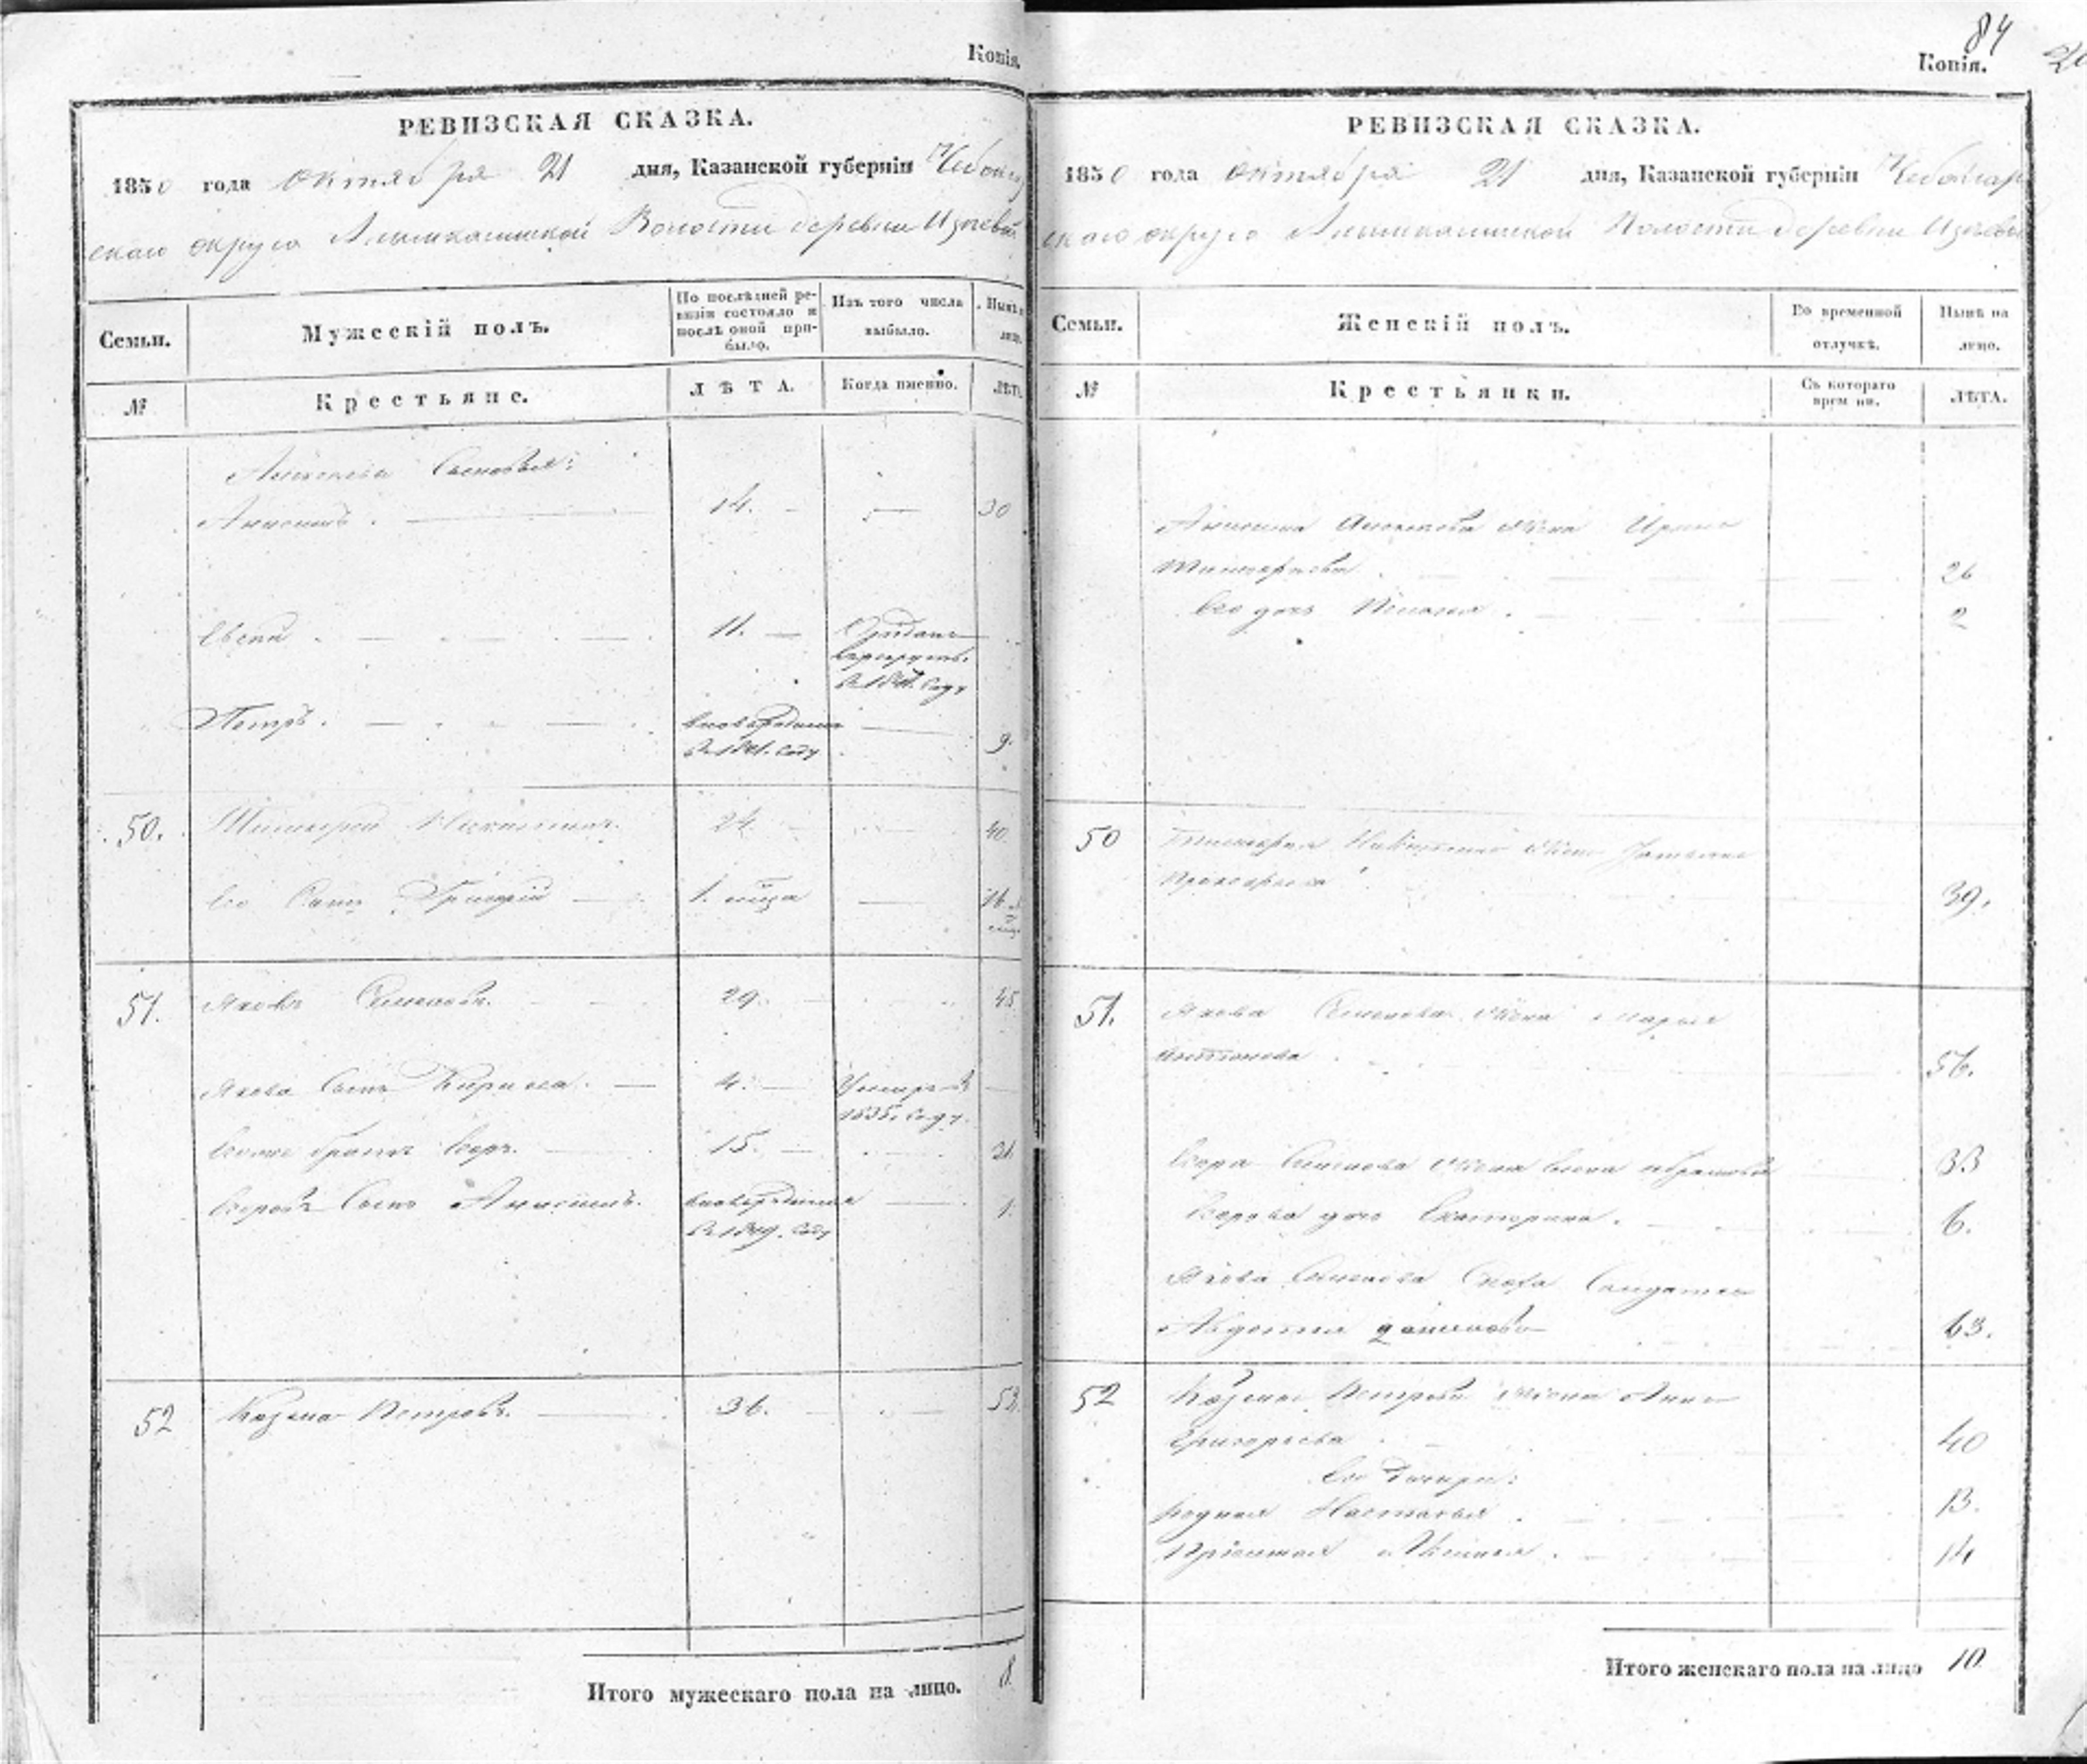 Копія.
РЕВИЗСКАЯ СКАЗКА.
1850 года октября 21 дня, Казанской губерніи Чебокса
скаго округа Волости деревни
Семьи.
Мужескій полъ.
По послѣдней ре-
визіи состояло и
послѣ оной при-
было.
Изъ того числа
выбыло.
Нынѣ
лицо.
№
Крестьяне.
ЛѢТА.
Когда именно.
ЛѢТА.
Сыновья:
Анисимъ. 14. 30
Евсей 11. Отданъ
в рекруты
в 184 году
Петръ. вновь рожденъ
в 1841. году 9.
50. 24. 40.
Его Сынъ Григорій 1. мѣца 16
51. Яковъ Семеновъ. 29. 45
Якова Сынъ Кирила. 4. Умеръ в
1835. году.
братъ Егоръ. 15. 31
Егоровъ Сынъ Анисимъ. вновь рожденъ
в 1849. году 1.
52 Козьма Петровъ. 36. 52.
Итого мужескаго пола на лицо. 8
84
Копія.
РЕВИЗСКАЯ СКАЗКА.
1850 года октября 21 дня, Казанской губерніи Чебоксар
скаго округа Волости деревни
Семьи.
Женскій полъ.
Во временной
отлучкѣ.
Нынѣ на
лицо.
№
Крестьянки.
Съ котораго
времени.
ЛѢТА.
Анисима жена Ирина
26
Его дочь 2
50 жена Татьяна
Прокофьева 39.
51. Якова Семенова жена Марья
Антонова 56.
Егора Семенова жена Елена 33
Егорова дочь Екатерина. 6.
Якова Семенова Сноха Солдатка
Авдотья 63.
52 Козьмы Петрова жена Анна
Григорьева 40
Его дочери:
родная Настасья 13.
Пріемная Аксинья. 14
Итого женскаго пола на лицо 10